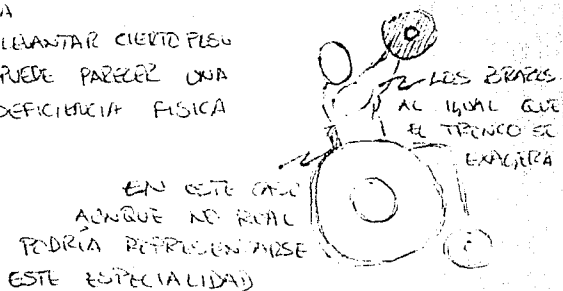 A
LEVANTAR CIERTO PESO
PUEDE PARECER UNA
DEFICIENCIA FISICA
LOS BRAZOS
AL IGUAL QUE
EL TRONCO SE
EXAGERA
EN ESTE CASO
AUNQUE NO REAL
PODRÍA REPRESENTARSE
ESTE ESPECIALIDAD